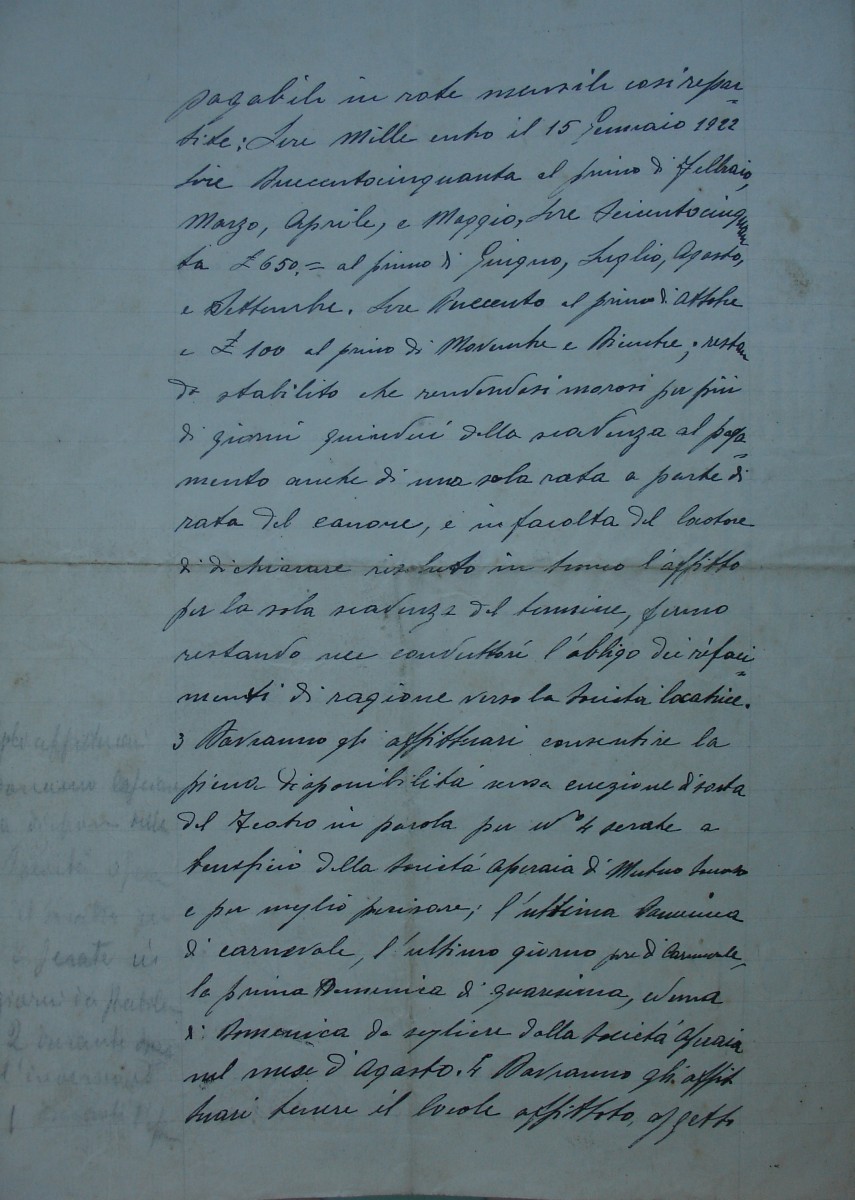 pagabili in rate mensili così repar-
tite; Lire Mille entro il 15 Gennaio 1922
Lire Duecentocinquanta al primo di Febbraio,
Marzo, Aprile, e Maggio, Lire Seicentocinquan
ta £ 650.= al primo di Giugno, Luglio, Agosto,
e Settembre. Lire Duecento al primo di Ottobre
e £ 100 al primo di Novembre e Dicembre; restan
do stabilito che rendendosi morosi per più
di giorni quindici della scadenza al paga-
mento anche di una sola rata o parte di
rata del canone, è in facoltà del locatore
di dichiarare risoluto in tronco l'affitto
per la sola scadenza del termine, fermo
restando nei conduttori l'obbligo dei refaci-
menti di ragione verso la Società locatrice.
3 Dovranno gli affittuari consentire la
piena disponibilità senza eccezione di sorta
del Teatro in parola per N° 4 serate a
beneficio della Società Operaia di Mutuo Soccorso
e per meglio precisare; l'ultima Domenica
di carnevale, l'ultimo giorno pre di Carnevale,
la prima Domenica di quaresima, ed una
di Domenica da scegliere dalla Società Operaia
nel mese d'Agosto. 4 Dovranno gli affit
tuari tenere il locale affittato, oggetti
gli affittuari
dovranno lasciare
a disposi della
Società
serate in
giorni da stabilire
2 durante
l'inverno
1